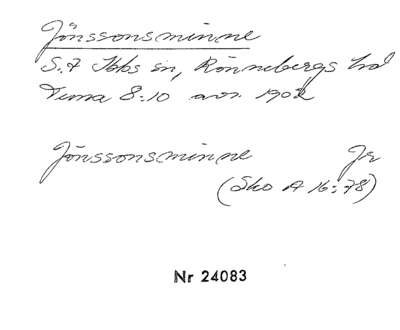 Jönssonsminne
S. 7 Ibbs sn, Rönnebergs hd
Tuna 8:10 avs. 1902
Jönssonsminne Jr
(Sko A 16:78)
Nr 24083